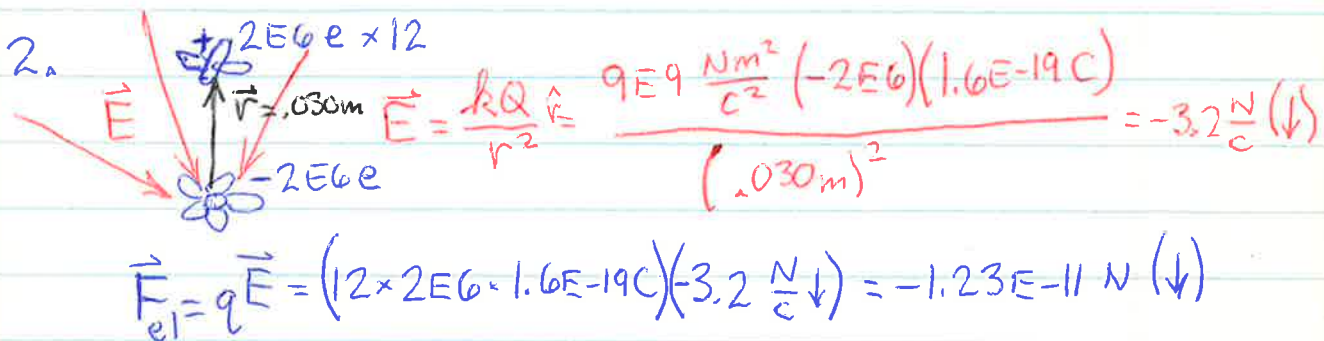 2. + 2E6e × 12
E⃗ r⃗ = .030m E⃗ = kQ/r² r̂ = 9E9 Nm²/C² (-2E6)(1.6E-19C) / (.030m)² = -3.2 N/C (↓)
-2E6e
F⃗el = qE⃗ = (12×2E6·1.6E-19C)(-3.2 N/C ↓) = -1.23E-11 N (↓)